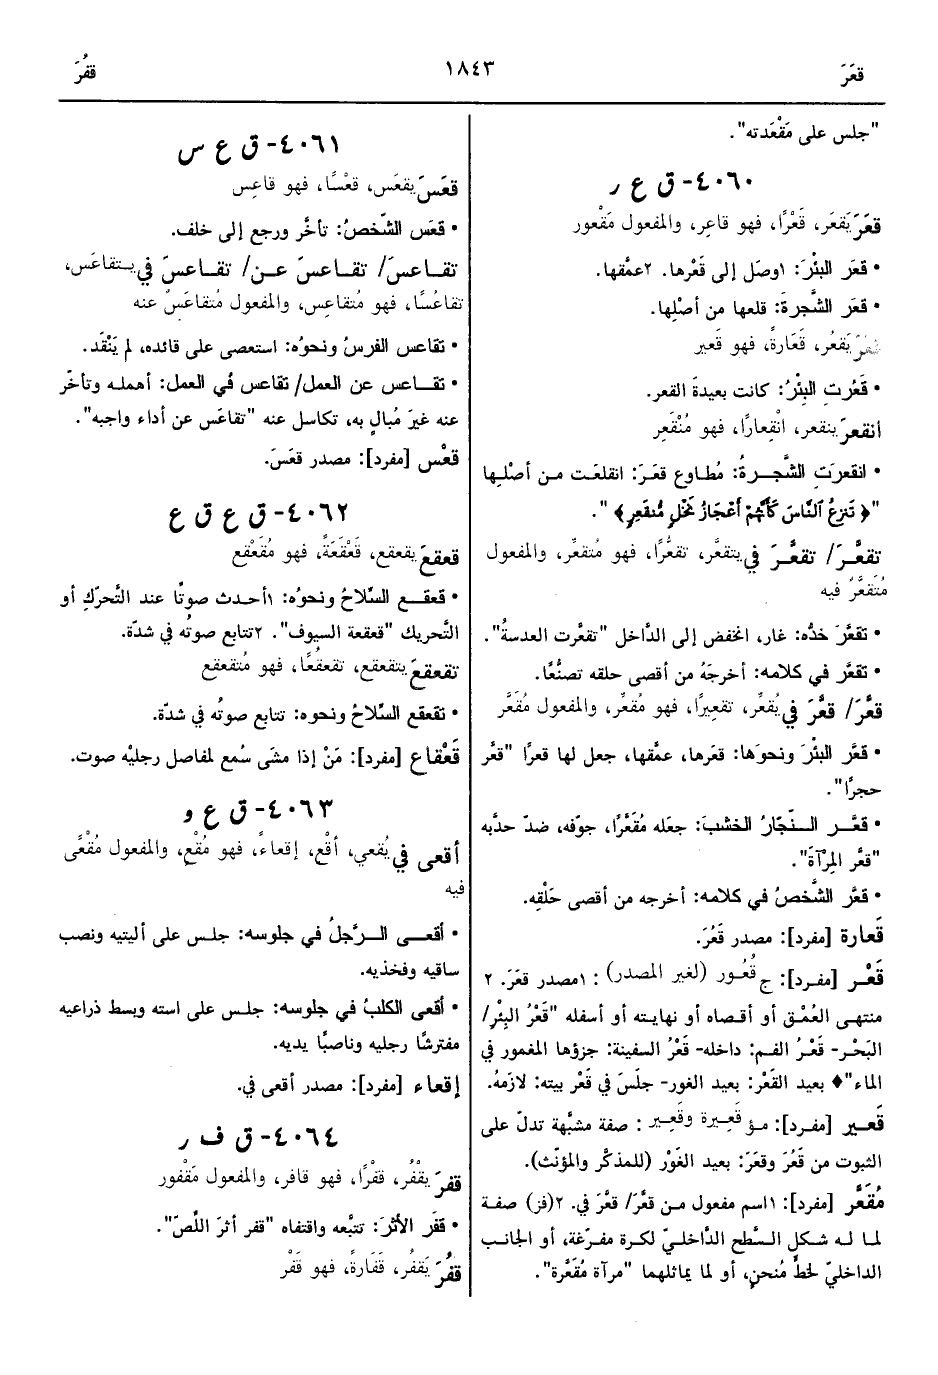 قعَرَ
١٨٤٣
قفُرَ
"جلس على مَقْعَدته".
٤٠٦٠- ق ع ر
قعَرَ يَقعَر، قَعْرًا، فهو قاعِر، والمفعول مَقْعور
• قعَر البئْرَ: ١وصَل إلى قَعْرها. ٢عمَّقها.
• قعَر الشَّجرةَ: قلعها من أصْلِها.
يَقعُر، قَعَارةً، فهو قَعير
• قَعُرتِ البِئْرُ: كانت بعيدةَ القعر.
انقعرَ ينقعر، انْقِعارًا، فهو مُنْقَعِر
• انقعرَتِ الشَّجرةُ: مُطاوع قعَرَ: انقلعَت من أصْلِها
"﴿ تَنزِعُ ٱلنَّاسَ كَأَنَّهُمْ أَعْجَازُ نَخْلٍ مُّنقَعِرٍ﴾ ".
تقعَّرَ/ تقعَّرَ في يتقعَّر، تقعُّرًا، فهو مُتقعِّر، والمفعول
مُتَقعَّرٌ فيه
• تقعَّرَ خدُّه: غار، انخفض إلى الدَّاخل "تقعَّرت العدسةُ".
• تقعَّر في كلامه: أخرجَهُ من أقصى حلقه تصنُّعًا.
قعَّرَ/ قعَّرَ في يُقعِّر، تقعيرًا، فهو مُقعِّر، والمفعول مُقَعَّر
• قعَّر البئْرَ ونحوَها: قعَرها، عمَّقها، جعل لها قعرًا "قعَّر
حجرًا".
• قعَّر النّجّارُ الخشبَ: جعَله مُقعَّرًا، جوّفه، ضدّ حدَّبه
"قعَّر المِرْآةَ".
• قعَّر الشَّخصُ في كلامه: أخرجه من أقصى حَلْقِه.
قَعارة [مفرد]: مصدر قَعُرَ.
قَعْر [مفرد]: ج قُعُور (لغير المصدر) : ١مصدر قعَرَ. ٢
منتهى العُمْق أو أقصاه أو نهايته أو أسفله "قَعْرُ البِئْرِ/
البَحْر- قَعْرُ الفم: داخله- قَعْرُ السفينة: جزؤها المغمور في
الماء"♦ بعيد القَعْر: بعيد الغور- جلَسَ في قَعْر بيته: لازمهُ.
قَعير [مفرد]: مؤ قَعِيرة وقَعِير : صفة مشبَّهة تدلّ على
الثبوت من قَعُرَ وقعَرَ: بعيد الغَوْر (للمذكّر والمؤنّث).
مُقعَّر [مفرد]: ١اسم مفعول من قعَّرَ/ قعَّرَ في. ٢(فز) صفة
لما له شكل السَّطح الدَّاخليّ لكرة مفرّغة، أو الجانب
الداخليّ لخطٍّ مُنحنٍ، أو لما يماثلهما "مرآة مُقعَّرة".
٤٠٦١- ق ع س
قعَسَ يقعَس، قعْسًا، فهو قاعِس
• قعَس الشّخصُ: تأخَّر ورجع إلى خلف.
تقاعسَ/ تقاعسَ عن/ تقاعسَ في يتقاعَس،
تقاعُسًا، فهو مُتقاعِس، والمفعول مُتقاعَسٌ عنه
• تقاعس الفرسُ ونحوُه: استعصى على قائده، لم يَنْقَد.
• تقاعس عن العمل/ تقاعس في العمل: أهمله وتأخّر
عنه غيرَ مُبالٍ به، تكاسل عنه "تقاعَس عن أداء واجبه".
قعْس [مفرد]: مصدر قعَسَ.
٤٠٦٢- ق ع ق ع
قعقعَ يقعقع، قَعْقَعَةً، فهو مُقَعْقِع
• قعقع السّلاحُ ونحوُه: ١أحدث صوتًا عند التَّحرّكِ أو
التَّحريك "قعقعة السيوف". ٢تتابع صوتُه في شدّة.
تقعقعَ يتقعقع، تقعقُعًا، فهو مُتقعقِع
• تقعقع السِّلاحُ ونحوه: تتابع صوتُه في شدّة.
قَعْقاع [مفرد]: مَنْ إذا مشى سُمع لمفاصل رجليْه صوت.
٤٠٦٣- ق ع و
أقعى في يُقعي، أقْعِ، إقعاءً، فهو مُقْعٍ، والمفعول مُقْعًى
فيه
• أقعى الرَّجلُ في جلوسه: جلس على أليتيه ونصب
ساقيه وفخذيه.
• أقعى الكلبُ في جلوسه: جلس على استه وبسط ذراعيه
مفترشًا رجليه وناصبًا يديه.
إقعاء [مفرد]: مصدر أقعى في.
٤٠٦٤- ق ف ر
قفَرَ يَقْفُر، قفْرًا، فهو قافر، والمفعول مَقْفور
• قفَر الأثرَ: تتبَّعه واقتفاه "قفر أثرَ اللّصّ".
قفُرَ يَقفُر، قَفَارةً، فهو قَفْر